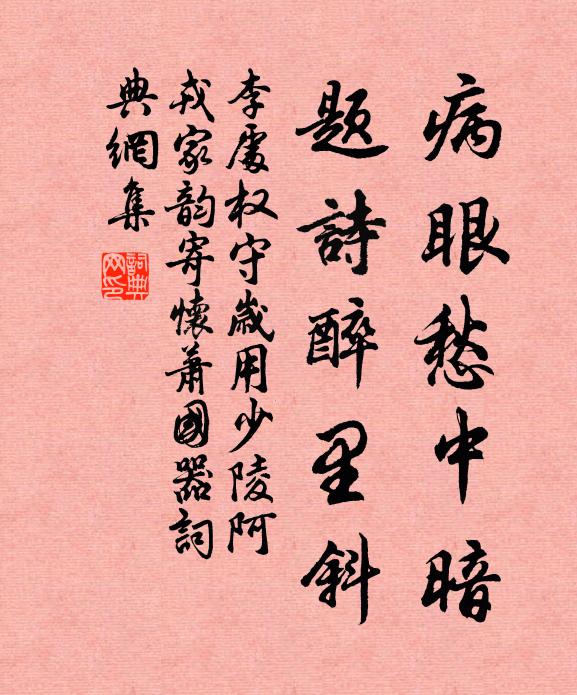 病眼愁中暗
題詩醉里斜
李處权守歲用少陵阿
戎家韵寄懷蕭國器詞
典網集
詞典网印